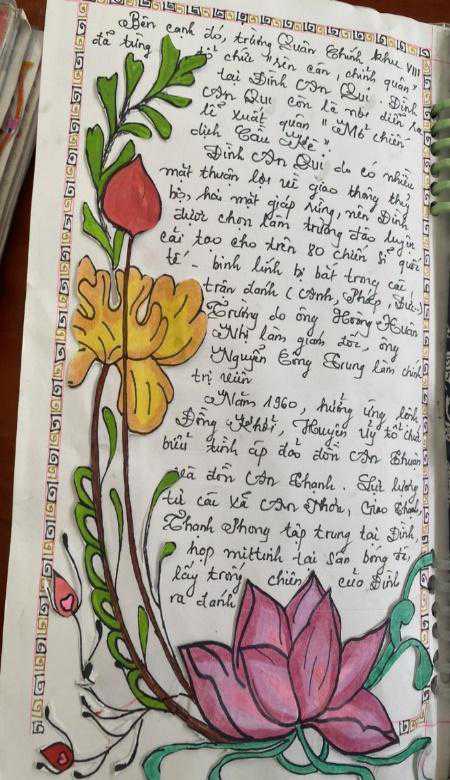 Bên cạnh đó, trường Quân Chính khu VIII
đã từng tổ chức "rèn cán, chỉnh quân"
tại Đình An Qui. Đình
An Qui còn là nơi diễn ra
lễ xuất quân "Mở chiến
dịch Cầu Kè".
Đình An Qui do có nhiều
mặt thuận lợi về giao thông thủy
bộ, hai mặt giáp rừng, nên Đình
được chọn làm trường đào luyện
cải tạo cho trên 80 chiến sĩ quốc
tế binh lính bị bắt trong các
trận đánh (Anh, Pháp, Đức..)
Trường do ông Hoàng Xuân
Nhị làm giám đốc, ông
Nguyễn Công Trung làm chính
trị viên
Năm 1960, hưởng ứng lệnh
Đồng Khởi, Huyện Ủy tổ chức
biểu tình áp đảo đồn An Thuận
và đồn An Thạnh. Lực lượng
từ các xã An Nhơn, Giao Thạnh
Thạnh Phong tập trung tại Đình,
họp mittinh tại sân bóng đá,
lấy trống chiến của Đình
ra đánh